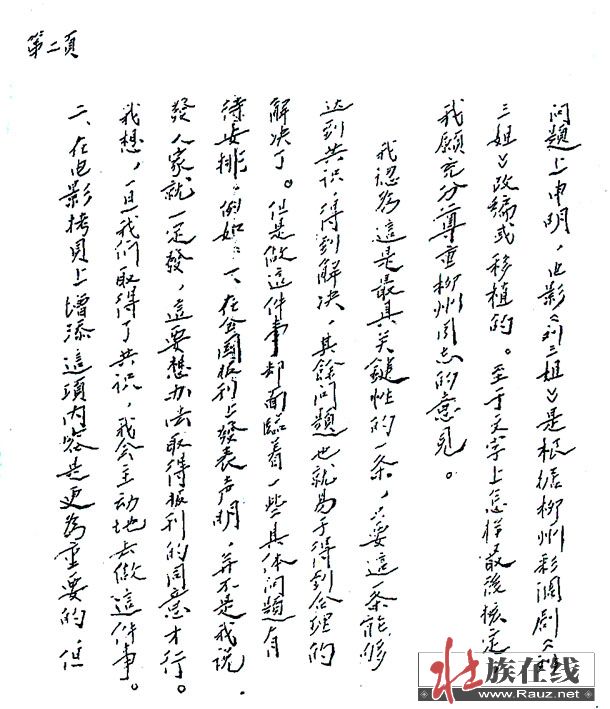 第二頁
问題上申明，电影《刘三姐》是根據柳州彩调劇《刘
三姐》改编或移植的。至于文字上怎样最後核定，
我願充分尊重柳州同志的意見。
我認為這是最具关鍵性的一条，只要這一条能够
达到共识，得到解决，其餘问題也就易于得到合理的
解决了。但是做這件事却面臨着一些具体问題有
待安排，例如：一、在全國报刊上發表声明，并不是我说
發人家就一定發，這要想办法取得报刊的同意才行。
我想，一旦我们取得了共识，我会主动地去做這件事。
二、在电影拷贝上增添這項内容是更為重要的，但
壮族在线
www.Rauz.net